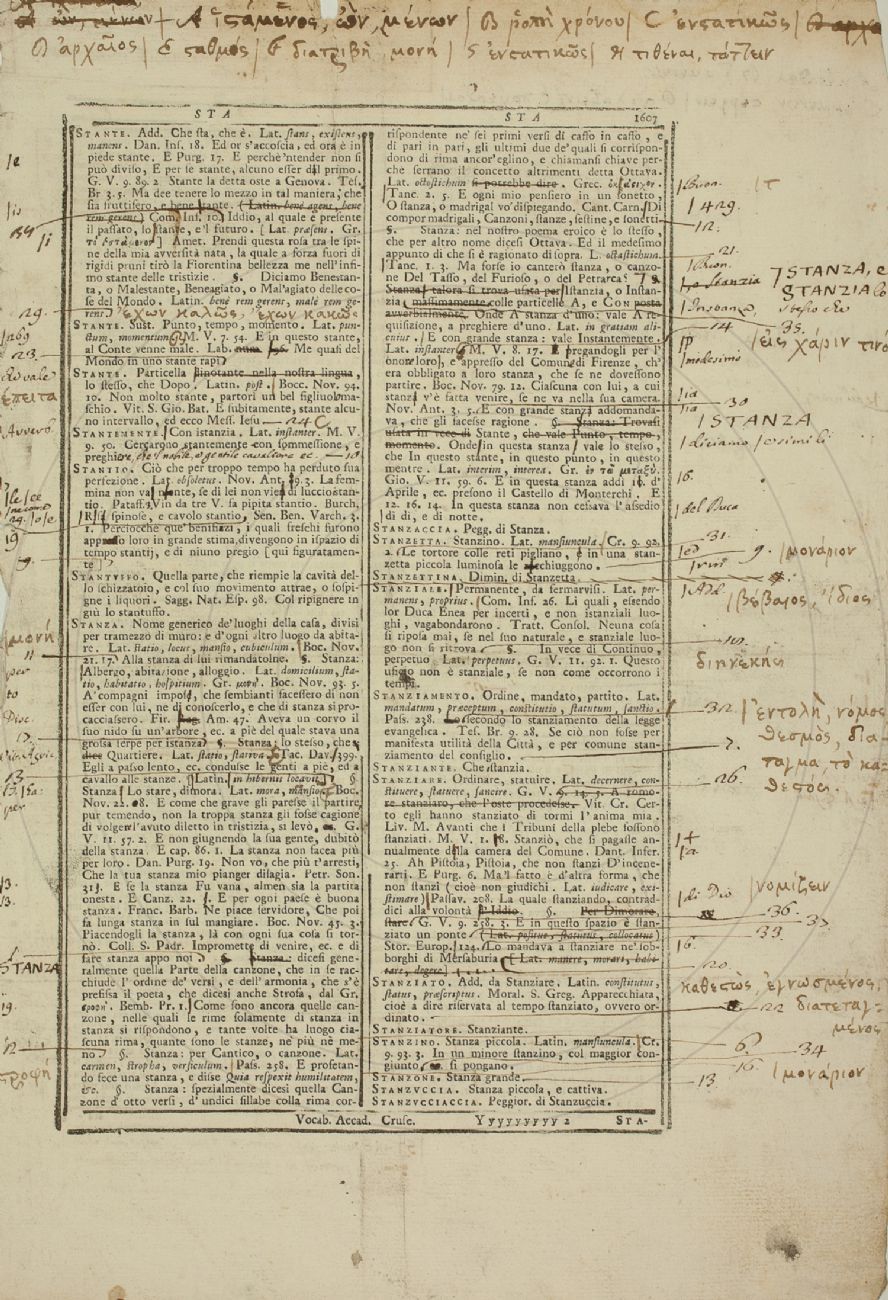 A ἱστάμενος, ὢν, μένων | B ῥοπὴ χρόνου | C ἐνστατικῶς |
D ἀρχαῖος | E σταθμός | διατριβὴ, μονή | ἐνστατικῶς | τιθέναι, τάττειν
STA
STANTE. Add. Che sta, che è. Lat. stans, existens,
manens. Dan. Inf. 18. Ed or s'accoscia, ed ora è in
piede stante. E Purg. 17. E perchè 'ntender non si
può diviso, E per se stante, alcuno esser dal primo.
G. V. 9. 89. 2. Stante la detta oste a Genova. Tes.
Br. 3. 5. Ma dee tenere lo mezzo in tal maniera, che
sia fruttifero, e bene stante. (Latin. bene agens, bene
rem gerens) Com. Inf. 10. Iddio, al quale è presente
il passato, lo stante, e 'l futuro. [Lat. præsens. Gr.
Amet. Prendi questa rosa tra le spi-
ne della mia avversità nata, la quale a forza fuori di
rigidi pruni tirò la Fiorentina bellezza me nell'infi-
mo stante delle tristizie. §. Diciamo Benestan-
te, o Malestante, Beneagiato, o Mal'agiato delle co-
se del Mondo. Latin. bene rem gerens, male rem ge-
rens. ἔχων καλῶς, ἔχων κακῶς
STANTE. Sust. Punto, tempo, momento. Lat. pun-
ctum, momentum. M. V. 7. 54. E in questo stante,
al Conte venne male. Lab. Me quasi del
Mondo in uno stante rapì
STANTE. Particella pinotante nella nostra lingua,
lo stesso, che Dopo. Latin. post. Bocc. Nov. 94.
10. Non molto stante, partorì un bel figliuol ma-
schio. Vit. S. Gio. Bat. E subitamente, stante alcu-
no intervallo, ed ecco Mess. Iesu
STANTEMENTE. Con istanzia. Lat. instanter. M. V.
9. 50. Cercarono stantemente con sommessione, e
preghiere
STANTIO. Ciò che per troppo tempo ha perduto sua
perfezione. Lat. obsoletus. Nov. Ant. 93. La fem-
mina non val niente, se di lei non vien di lucciostan-
tio. Pataff. 3. Vin da tre V. sa pipita stantio. Burch.
spinose, e cavolo stantio, Sen. Ben. Varch. 3.
1. Percioccè que' benifizj, i quali freschi furono
appresso loro in grande stima, divengono in ispazio di
tempo stantij, e di niuno pregio [qui figuratamen-
te]
STANTUFFO. Quella parte, che riempie la cavità del-
lo schizzatoio, e col suo movimento attrae, o sospi-
gne i liquori. Sagg. Nat. Esp. 98. Col ripignere in
giù lo stantuffo.
STANZA. Nome generico de' luoghi della casa, divisi
per tramezzo di muro: e d'ogni altro luogo da abita-
re. Lat. statio, locus, mansio, cubiculum. Bocc. Nov.
21. 17. Alla stanza di lui rimandatolne. §. Stanza:
Albergo, abitazione, alloggio. Lat. domicilium, sta-
tio, habitatio, hospitium. Gr. μονή. Boc. Nov. 93. 5.
A' compagni impose, che sembianti facessero di non
esser con lui, ne di conoscerlo, e che di stanza si pro-
cacciassero. Fir. Am. 47. Aveva un corvo il
suo nido su un'arbore, ec. a piè del quale stava una
grossa serpe per istanza. §. Stanza: lo stesso, che
dice Quartiere. Lat. statio, stativa. Tac. Dav. 399.
Egli a passo lento, ec. condusse le genti a piè, ed a
cavallo alle stanze. Latin. in hibernis locavit. §.
Stanza Lo stare, dimora. Lat. mora, mansio. Boc.
Nov. 22. 8. E come che grave gli paresse il partire,
pur temendo, non la troppa stanza gli fosse cagione
di volger l'avuto diletto in tristizia, si levò, ec. G.
V. 11. 57. 2. E non giugnendo la sua gente, dubitò
della stanza. E cap. 86. 1. La stanza non facea più
per loro. Dan. Purg. 19. Non vo, che più t'arresti,
Che la tua stanza mio pianger disagia. Petr. Son.
31. E se la stanza Fu vana, almen sia la partita
onesta. E Canz. 22. E per ogni paese è buona
stanza. Franc. Barb. Ne piace servidore, Che poi
fa lunga stanza in sul mangiare. Boc. Nov. 45. 3.
Piacendogli la stanza, là con ogni sua cosa si tor-
nò. Coll. S. Padr. Impromette di venire, ec. e di
fare stanza appo noi §. Stanza: dicesi gene-
ralmente quella Parte della canzone, che in se rac-
chiude l'ordine de' versi, e dell'armonia, che s'è
prefissa il poeta, che dicesi anche Strofa, dal Gr.
Bemb. Pr. 1. Come sono ancora quelle can-
zone, nelle quali le rime solamente di stanza in
stanza si rispondono, e tante volte ha luogo cia-
scuna rima, quante sono le stanze, ne' più nè me-
no. §. Stanza: per Cantico, o canzone. Lat.
carmen, stropha, versiculum. Pass. 258. E profetan-
do fece una stanza, e disse Quia respexit humilitatem,
&c. §. Stanza: spezialmente dicesi quella Can-
zone d'otto versi, d'undici sillabe colla rima cor-
STA 1607
rispondente ne' sei primi versi di caffo in caffo, e
di pari in pari, gli ultimi due de' quali si corrispon-
dono di rima ancor'eglino, e chiamansi chiave per-
chè serrano il concetto altrimenti detta Ottava.
Lat. octostichum si potrebbe dire. Grec. ὀκτάστιχον.
Tanc. 2. 5. E ogni mio pensiero in un sonetto,
O stanza, o madrigal vo' dispiegando. Cant. Carn. Di
compor madrigali, Canzoni, stanze, sestine, e sonetti
§. Stanza: nel nostro poema eroico è lo stesso,
che per altro nome dicesi Ottava. Ed il medesimo
appunto di che si è ragionato di sopra. L. octastichum.
Tanc. 1. 3. Ma forse io canterò stanza, o canzo-
ne Del Tasso, del Furioso, o del Petrarca §.
Stanza talora si trova usata per Istanzia, o Instan-
zia (massimamente colle particelle A, e CON posta
avverbialmente. Onde A stanza d'uno: vale A re-
quisizione, a preghiere d'uno. Lat. in gratiam ali-
cuius. E con grande stanza: vale Instantemente.
Lat. instanter. M. V. 8. 17. E pregandogli per l'
onor loro, e appresso del Comun di Firenze, ch'
era obbligato a loro stanza, che se ne dovessono
partire. Boc. Nov. 79. 12. Ciascuna con lui, a cui
stanza v'è fatta venire, se ne va nella sua camera.
Nov. Ant. 3. 5. E con grande stanza addomanda-
va, che gli facesse ragione. §. Stanza: Trovasi
usata in vece di Stante, che vale Punto, tempo,
momento. Onde In questa stanza vale lo stesso,
che In questo stante, in questo punto, in questo
mentre. Lat. interim, interea. Gr. ἐν τῷ μεταξύ.
Gio. V. 11. 59. 6. E in questa stanza addì 18. d'
Aprile, ec. presono il Castello di Monterchi. E
12. 16. 14. In questa stanza non cessava l'assedio
di dì, e di notte.
STANZACCIA. Pegg. di Stanza.
STANZETTA. Stanzino. Lat. mansiuncula. Cr. 9. 92.
2. Le tortore colle reti pigliano, e in una stan-
zetta piccola luminosa le chiuggono.
STANZETTINA. Dimin. di Stanzetta.
STANZIALE. Permanente, da fermarvisi. Lat. per-
manens, proprius. Com. Inf. 26. Li quali, essendo
lor Duca Enea per incerti, e non istanziali luo-
ghi, vagabondarono. Tratt. Consol. Neuna cosa
si riposa mai, se nel suo naturale, e stanziale luo-
go non si ritrova §. In vece di Continuo,
perpetuo Lat. perpetuus. G. V. 11. 92. 1. Questo
uficio non è stanziale, se non come occorrono i
tempi.
STANZIAMENTO. Ordine, mandato, partito. Lat.
mandatum, præceptum, constitutio, statutum, sanctio.
Pass. 238. Lo secondo lo stanziamento della legge
evangelica. Tes. Br. 9. 28. Se ciò non fosse per
manifesta utilità della Città, e per comune stan-
ziamento del consiglio.
STANZIANTE. Che stanzia.
STANZIARE. Ordinare, statuire. Lat. decernere, con-
stituere, statuere, sancire. G. V. 9. 14. 3. A romo-
re stanziaro, che l'oste procedesse. Vit. Cr. Cer-
to egli hanno stanziato di tormi l'anima mia.
Liv. M. Avanti che i Tribuni della plebe fossono
stanziati. M. V. 1. 8. Stanziò, che si pagasse an-
nualmente della camera del Comune. Dant. Infer.
25. Ah Pistoia, Pistoia, che non stanzi D'incene-
rarti. E Purg. 6. Ma l fatto è d'altra forma, che
non stanzi (cioè non giudichi. Lat. iudicare, exi-
stimare) Passav. 208. La quale stanziando, contrad-
dici alla volontà d'Iddio. §. Per Dimorare,
stare. G. V. 9. 258. 3. E in questo spazio è stan-
ziato un ponte (Lat. positus, statutus, collocatus)
Stor. Europ. 124. Lo mandava a stanziare ne' sob-
borghi di Mersaburia (Lat. manere, morari, habi-
tare, degere)
STANZIATO. Add. da Stanziare. Latin. constitutus,
status, præscriptus. Moral. S. Greg. Apparecchiata,
cioè a dire riservata al tempo stanziato, ovvero or-
dinato.
STANZIATORE. Stanziante.
STANZINO. Stanza piccola. Latin. mansiuncula. Cr.
9. 93. 3. In un minore stanzino, col maggior con-
giunto si pongano.
STANZONE. Stanza grande.
STANZUCCIA. Stanza piccola, e cattiva.
STANZUCCIACCIA. Peggior. di Stanzuccia.
Vocab. Accad. Crusc. Yyyyyyyy 2 STA-
STANZA, e
STANZIA lo
stesso che
εἰς χάριν τινὸς
STANZA
diciamo
del Duca
μονάριον
βέβαιος, ἴδιος
διηνεκής
ἐντολὴ, νόμος
θεσμὸς, διά-
ταγμα, τὸ κα-
θεστός.
νομίζειν
καθεστὼς, ἐγνωσμένος,
διατεταγ-
μένος
μονάριον
ἔπειτα
μονή
STANZA
στροφή